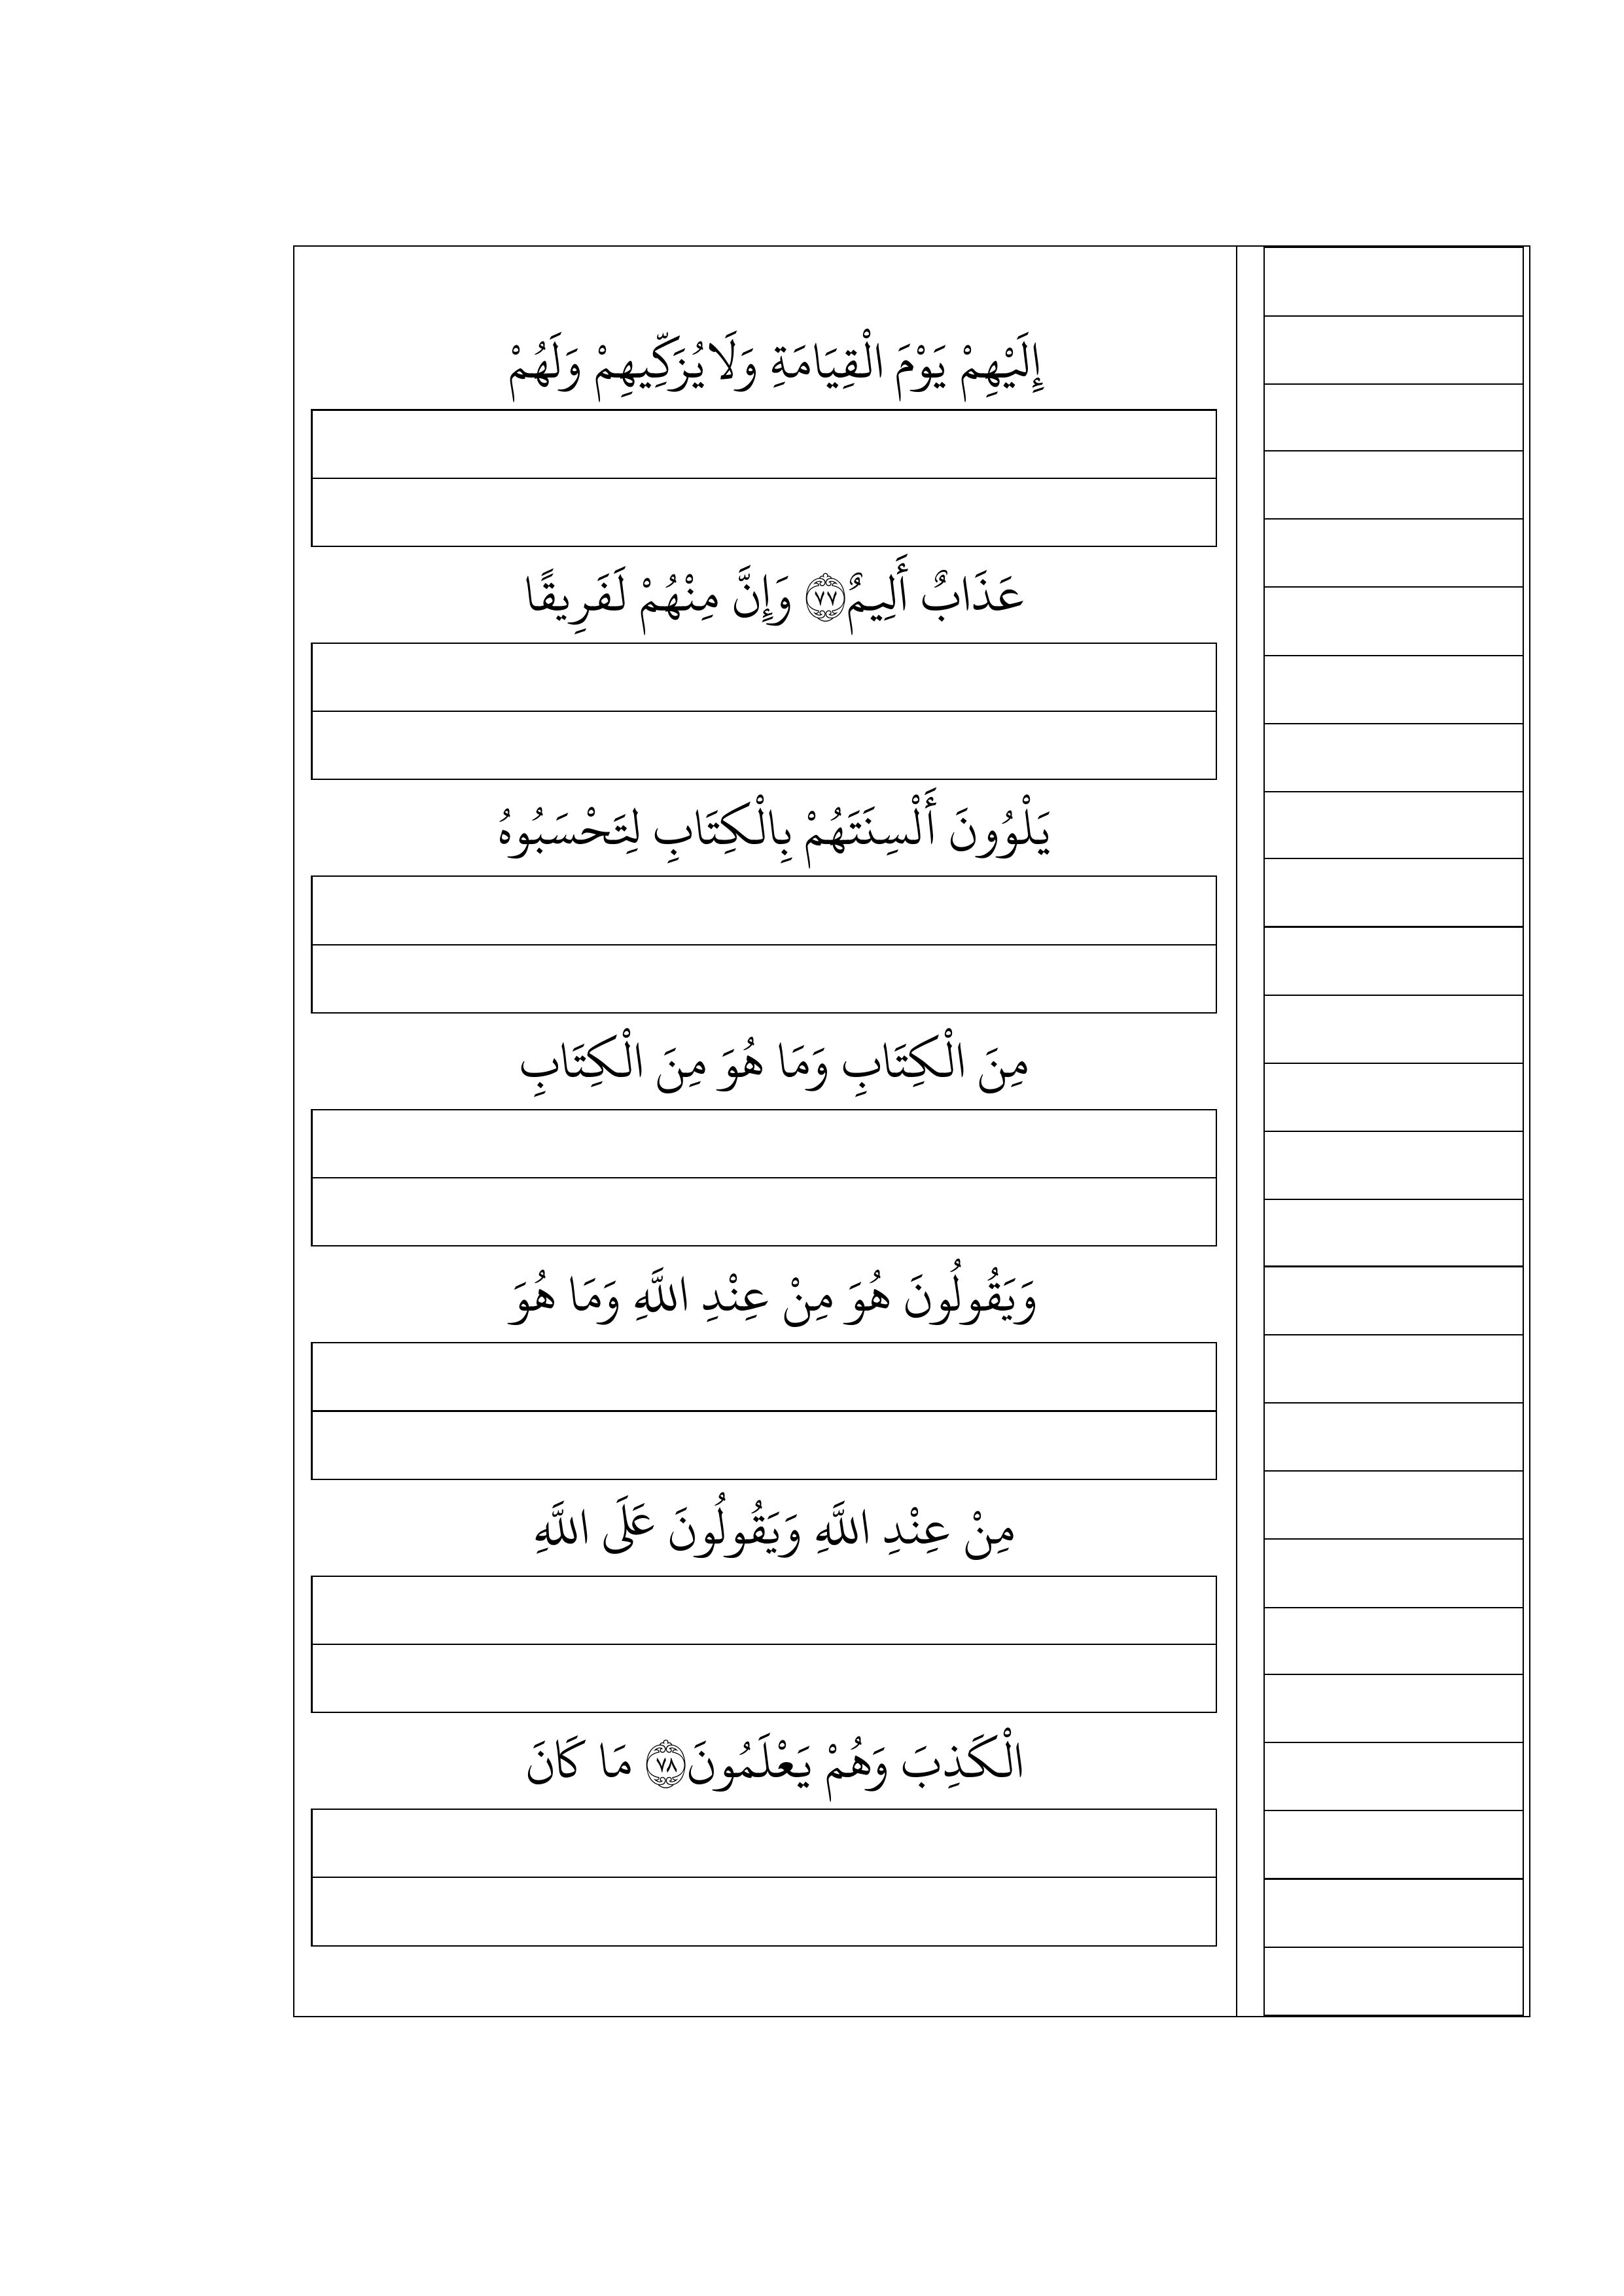 إِلَيْهِمْ يَوْمَ الْقِيَامَةِ وَلَايُزَكِّيهِمْ وَلَهُمْ
عَذَابٌ أَلِيمٌ ﴿٧٧﴾ وَإِنَّ مِنْهُمْ لَفَرِيقًا
يَلْوُونَ أَلْسِنَتَهُمْ بِالْكِتَابِ لِتَحْسَبُوهُ
مِنَ الْكِتَابِ وَمَا هُوَ مِنَ الْكِتَابِ
وَيَقُولُونَ هُوَ مِنْ عِنْدِ اللَّهِ وَمَا هُوَ
مِنْ عِنْدِ اللَّهِ وَيَقُولُونَ عَلَى اللَّهِ
الْكَذِبَ وَهُمْ يَعْلَمُونَ ﴿٧٨﴾ مَا كَانَ